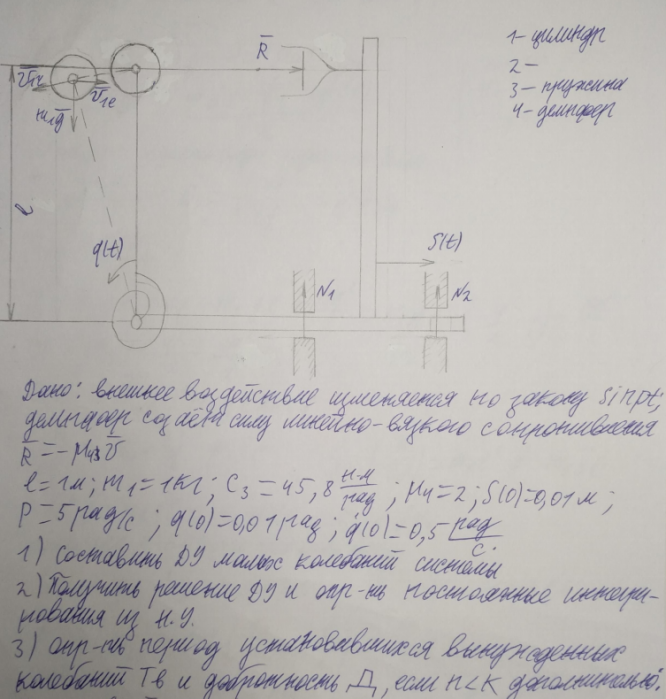 R
1 - цилиндр
2 -
3 - пружина
4 - демпфер
V1r
V1e
m1g
l
q(t)
S(t)
N1
N2
Дано: внешнее воздействие изменяется по закону Sinpt;
демпфер создаёт силу линейно-вязкого сопротивления
R = -μ4 V
l = 1м; m1 = 1кг; C3 = 45,8 н·м/рад; μ4 = 2; S(0) = 0,01м;
P = 5 рад/с; q(0) = 0,01 рад; q̇(0) = 0,5 рад/с.
1) составить ДУ малых колебаний системы
2) Получить решение ДУ и опр-ть постоянные интегри-
рования из Н.У.
3) опр-ть период установившихся вынужденных
колебаний Tв и добротность Д, если n<k дополнительно: